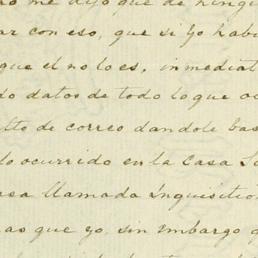 me dijo que de ning
ar con eso, que si yo habi
que el no lo es, inmediat
do datos de todo lo que oc
lto de correo dandole bas
lo ocurrido en la Casa
asa llamada Inquisitio
as que yo, sin embargo q